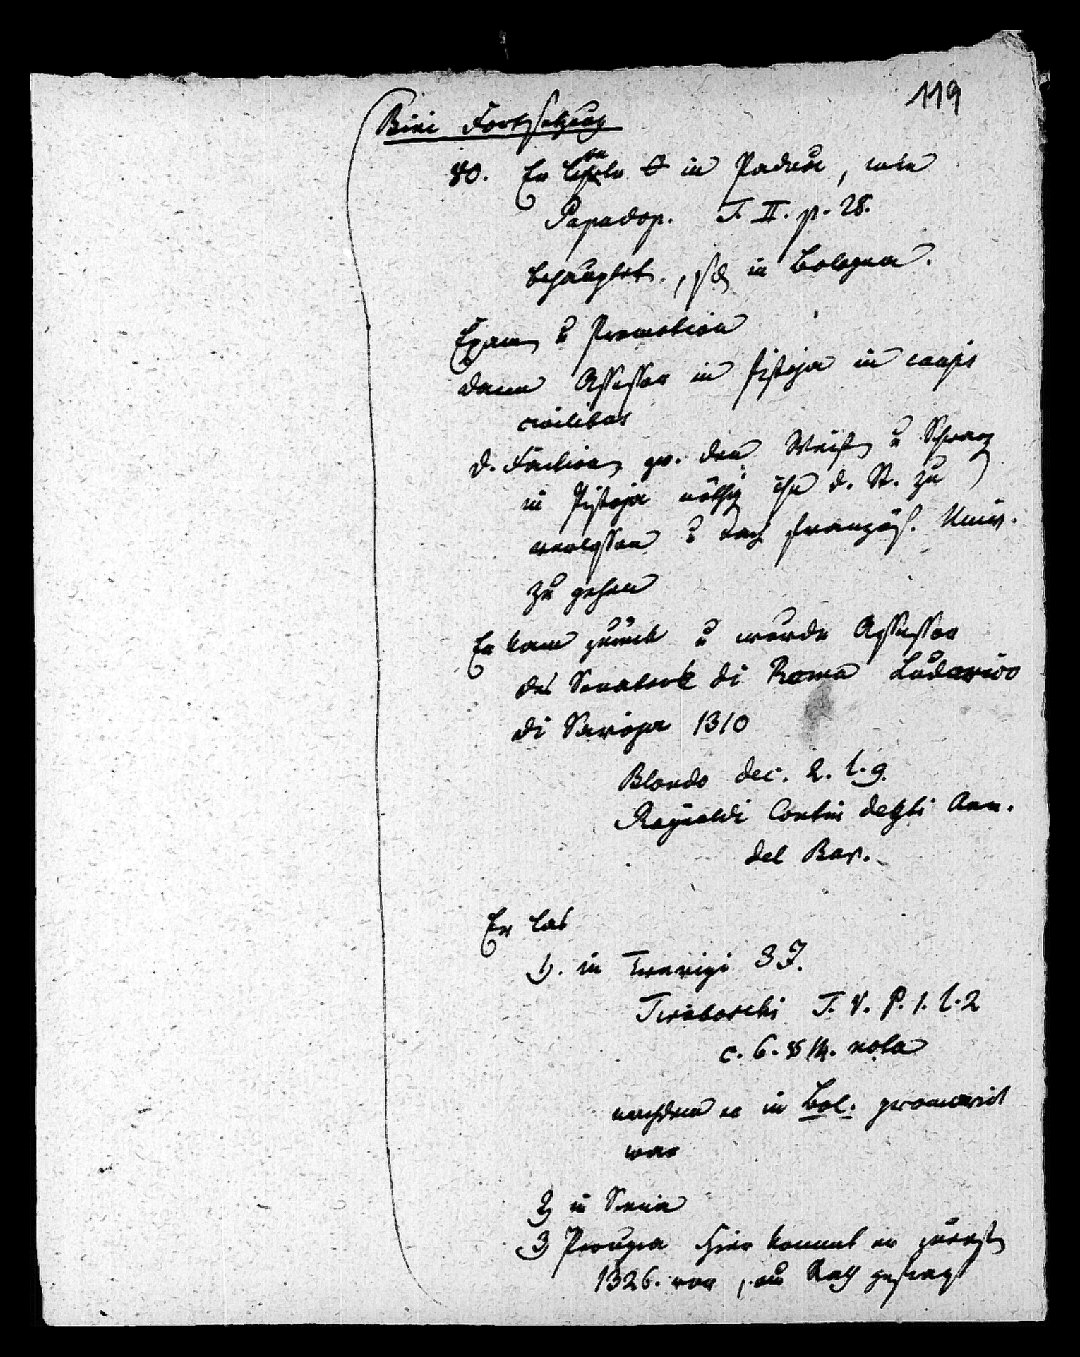 119
Bini Fortsetzung
80. Er lehrte in Padua, wie
Papadop. T. II. p. 28.
behauptet, in Bologna.
Examen u Promotion
dann Assessor in Pistoja in causis
civilibus
d. Factionen zw. den Weißen u Schwarzen
in Pistoja nöthig ihn d. St. zu
verlassen u nach französ. Univ.
zu gehen
Er kam zurück u wurde Assessor
des Senators di Roma Ludovico
di Savoja 1310
Blondo dec. 2. l. 9
Raynaldi Contin degli Ann.
del Bar.
Er las
1). in Trevigi 3 J.
Tiraboschi T. V. P. 1. l. 2
c. 6. § 14. nota
nachdem er in Bol. promovirt
war
2) in Siena
3) Perugia hier kommt er zuerst
1326. vor, um Rath gefragt